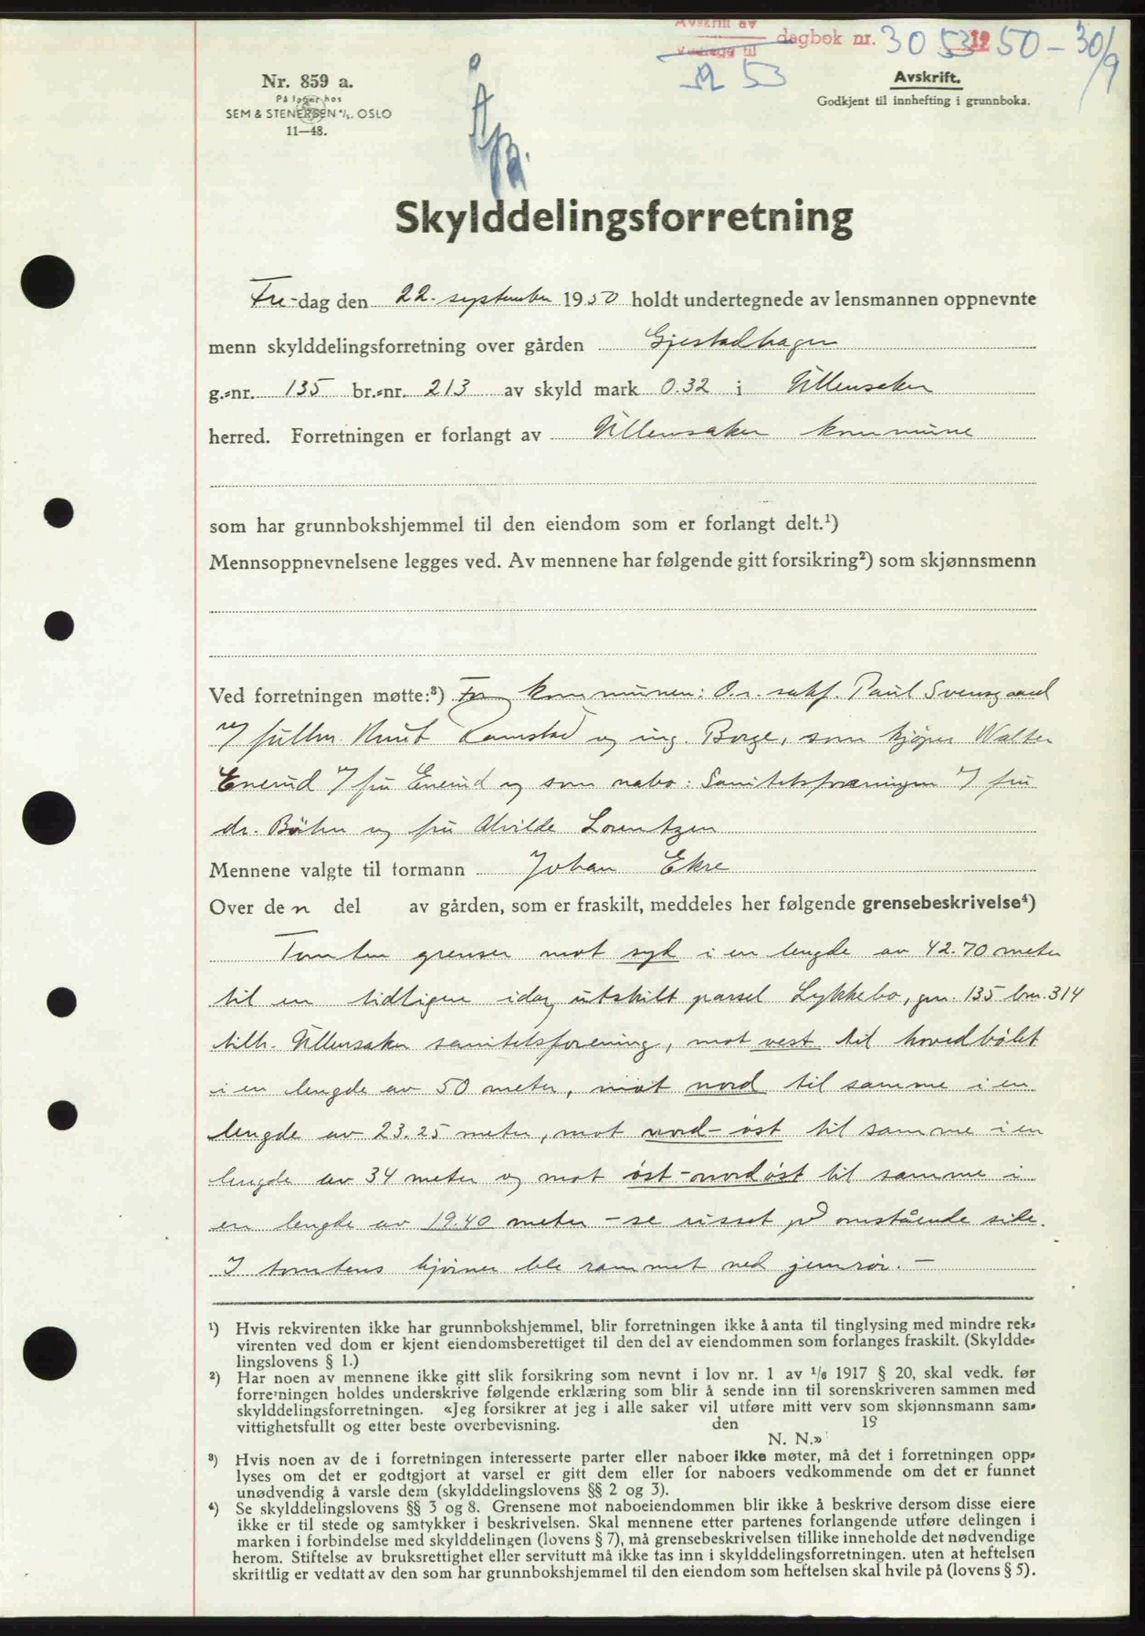 Avskrift av
dagbok nr. 3053 1950 - 30/9
Vedlegg til
53
Nr. 859 a.
På lager hos
SEM & STENERSEN A/S, OSLO
11—48.
Avskrift.
Godkjent til innhefting i grunnboka.
Skylddelingsforretning
Fre-dag den 22. september 1950 holdt undertegnede av lensmannen oppnevnte
menn skylddelingsforretning over gården Gjestadhagen
g.=nr. 135 br.=nr. 213 av skyld mark 0.32 i Ullensaker
herred. Forretningen er forlangt av Ullensaker kommune
som har grunnbokshjemmel til den eiendom som er forlangt delt.¹)
Mennsoppnevnelsene legges ved. Av mennene har følgende gitt forsikring²) som skjønnsmenn
Ved forretningen møtte:³) For kommunen: O.r. sakf. Paul Svensgaard
v/ fullm. Knut Ramstad og ing. Borge, som kjøper Walter
Enerud v/ fru Enerud og som nabo: Sanitetsforeningen v/ fru
dr. Bøhn og fru Alvilde Lorentzen
Mennene valgte til formann Johan Ekre
Over den del av gården, som er fraskilt, meddeles her følgende grensebeskrivelse⁴)
Tomten grenser mot syd i en lengde av 42.70 meter
til en tidligere idag utskilt parsel Lykkebo, gnr. 135 bnr. 314
tilh. Ullensaker sanitetsforening, mot vest til hovedbølet
i en lengde av 50 meter, mot nord til samme i en
lengde av 23.25 meter, mot nord-øst til samme i en
lengde av 34 meter og mot øst-nordøst til samme i
en lengde av 19.40 meter - se risset på omstående side.
I tomtens hjørner ble rammet ned jernrør. —
¹) Hvis rekvirenten ikke har grunnbokshjemmel, blir forretningen ikke å anta til tinglysing med mindre rek=
virenten ved dom er kjent eiendomsberettiget til den del av eiendommen som forlanges fraskilt. (Skyldde=
lingslovens § 1.)
²) Har noen av mennene ikke gitt slik forsikring som nevnt i lov nr. 1 av 1/6 1917 § 20, skal vedk. før
forretningen holdes underskrive følgende erklæring som blir å sende inn til sorenskriveren sammen med
skylddelingsforretningen. «Jeg forsikrer at jeg i alle saker vil utføre mitt verv som skjønnsmann sam=
vittighetsfullt og etter beste overbevisning. den 19
N. N.»
³) Hvis noen av de i forretningen interesserte parter eller naboer ikke møter, må det i forretningen opp=
lyses om det er godtgjort at varsel er gitt dem eller for naboers vedkommende om det er funnet
unødvendig å varsle dem (skylddelingslovens §§ 2 og 3).
⁴) Se skylddelingslovens §§ 3 og 8. Grensene mot naboeiendommen blir ikke å beskrive dersom disse eiere
ikke er til stede og samtykker i beskrivelsen. Skal mennene etter partenes forlangende utføre delingen i
marken i forbindelse med skylddelingen (lovens § 7), må grensebeskrivelsen tillike inneholde det nødvendige
herom. Stiftelse av bruksrettighet eller servitutt må ikke tas inn i skylddelingsforretningen. uten at heftelsen
skriftlig er vedtatt av den som har grunnbokshjemmel til den eiendom som heftelsen skal hvile på (lovens § 5).